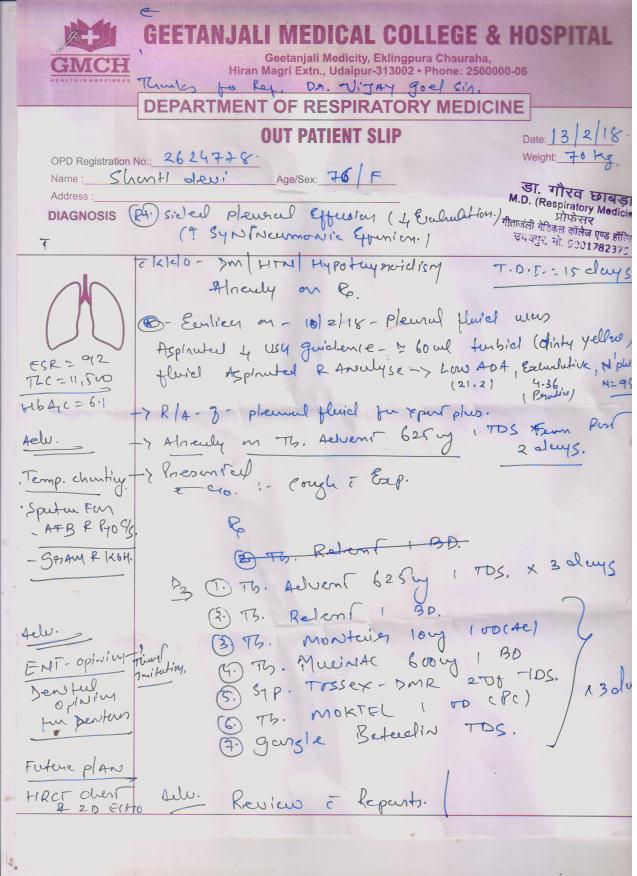 GMCH
HEALTH IS HAPPINESS
GEETANJALI MEDICAL COLLEGE & HOSPITAL
Geetanjali Medicity, Eklingpura Chauraha,
Hiran Magri Extn., Udaipur-313002 • Phone: 2500000-06
Thanks for Rep. Dr. Vijay Goel Sir.
DEPARTMENT OF RESPIRATORY MEDICINE
OUT PATIENT SLIP
Date: 13/2/18
Weight: 70 kg.
OPD Registration No.: 2624778
Name : Shanti devi Age/Sex: 76/F
Address :
डा. गौरव छाबड़ा
M.D. (Respiratory Medicin
प्रोफेसर
गीतांजली मेडिकल कॉलेज एण्ड हॉस्पि
उदयपुर, मो. 9001782375
DIAGNOSIS (Rt.) sided pleural Effusion (↓ Evaluation.)
(↑ SynPneumonic Effusion.)
c̄ K/C/O - DM/HTN/Hypothyroidism
Already on Rx.
T.D.I. = 15 days
Earlier on - 10/2/18 - pleural fluid was
Aspirated ↓ USG guidance - ≈ 60ml turbid (dirty yellow)
fluid Aspirated & Analyse → Low ADA, Exudative, N'
(21.2) 4.36 N=9
(Protein)
ESR = 92
TLC = 11,500
HbA1C = 6.1
→ R/A - pleural fluid for xpert plus.
Adv.
→ Already on Tb. Advent 625mg 1 TDS from Past
2 days.
. Temp. charting
→ Presented
c̄ c/o. :- Cough c̄ Exp.
. Sputum For
- AFB & Pyo C/S.
- GRAM & KOH.
Rx
2. Tb. Relent 1 BD.
1. Tb. Advent 625mg 1 TDS. x 3 days
2. Tb. Relent 1 BD.
3. Tb. Montair 10mg 1 OD (AC)
4. Tb. MUCINAC 600mg 1 BD
5. Syp. Tossex-DMR 2 TDS.
6. Tb. MOKTEL 1 OD (PC)
7. gargle Betadin TDS.
x 3 da
Adv.
ENT-opinion → Throat
irritation.
Dental
opinion
for Denture
Future plAN
HRCT chest
& 2D ECHO
Adv. Review c̄ Reports.